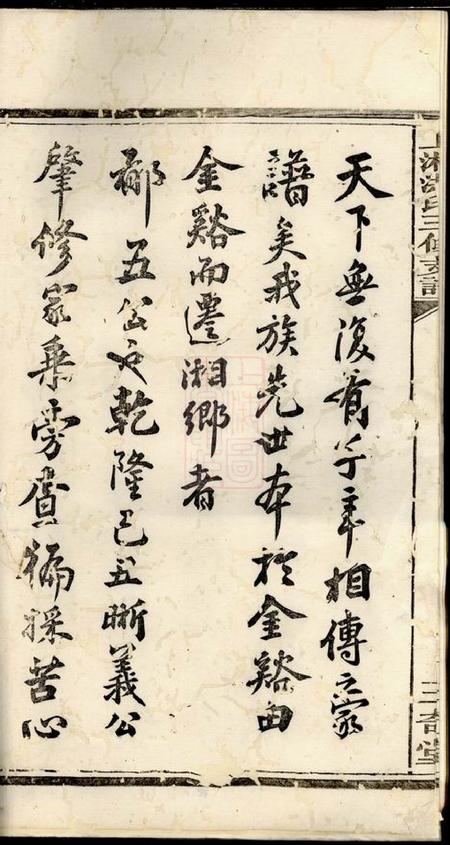 天下無復有千年相傳之家
譜矣我族先世本於金谿由
金谿而遷湘鄉者
郗五公也乾隆己丑晰義公
肇修家乘旁蒐徧採苦心
三修支譜
三奇堂